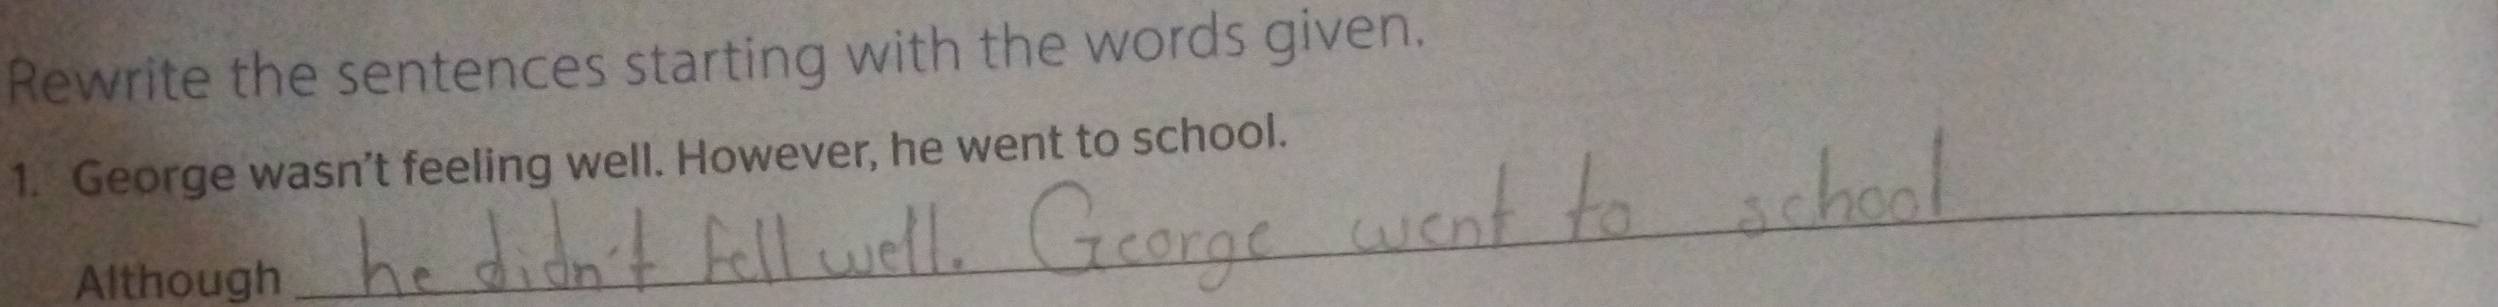 Rewrite the sentences starting with the words given.
1. George wasn't feeling well. However, he went to school.
Although he didn't fell well. George went to school